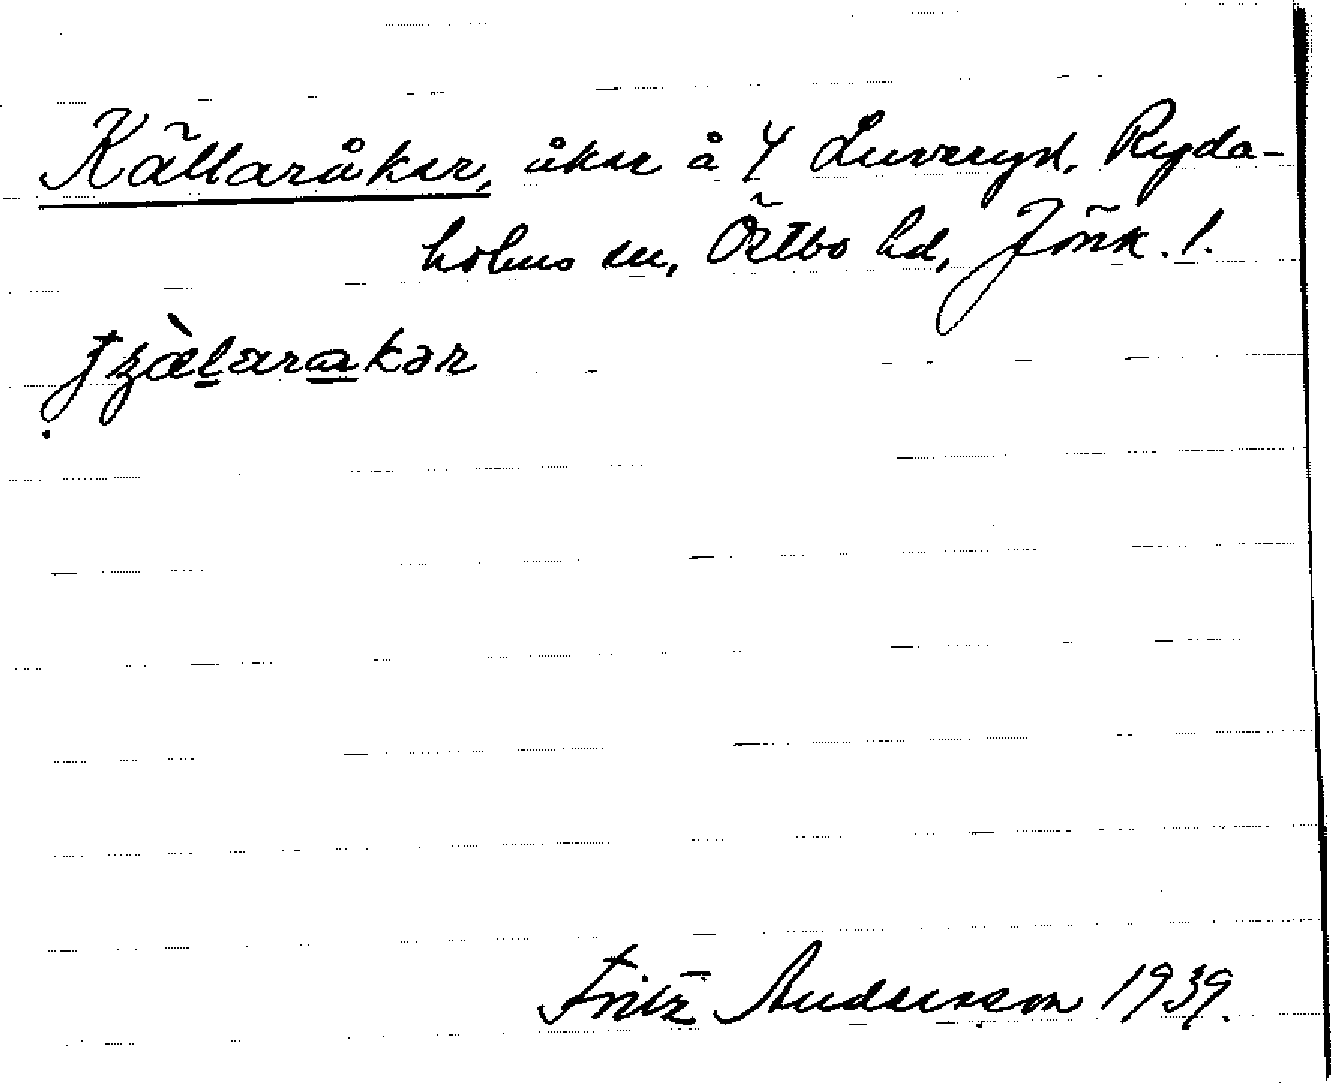 Källaråker, åker å 4 Luvaryd, Ryda-
holms sn, Östbo hd, Jönk. l.
Fritz Andersson 1939.